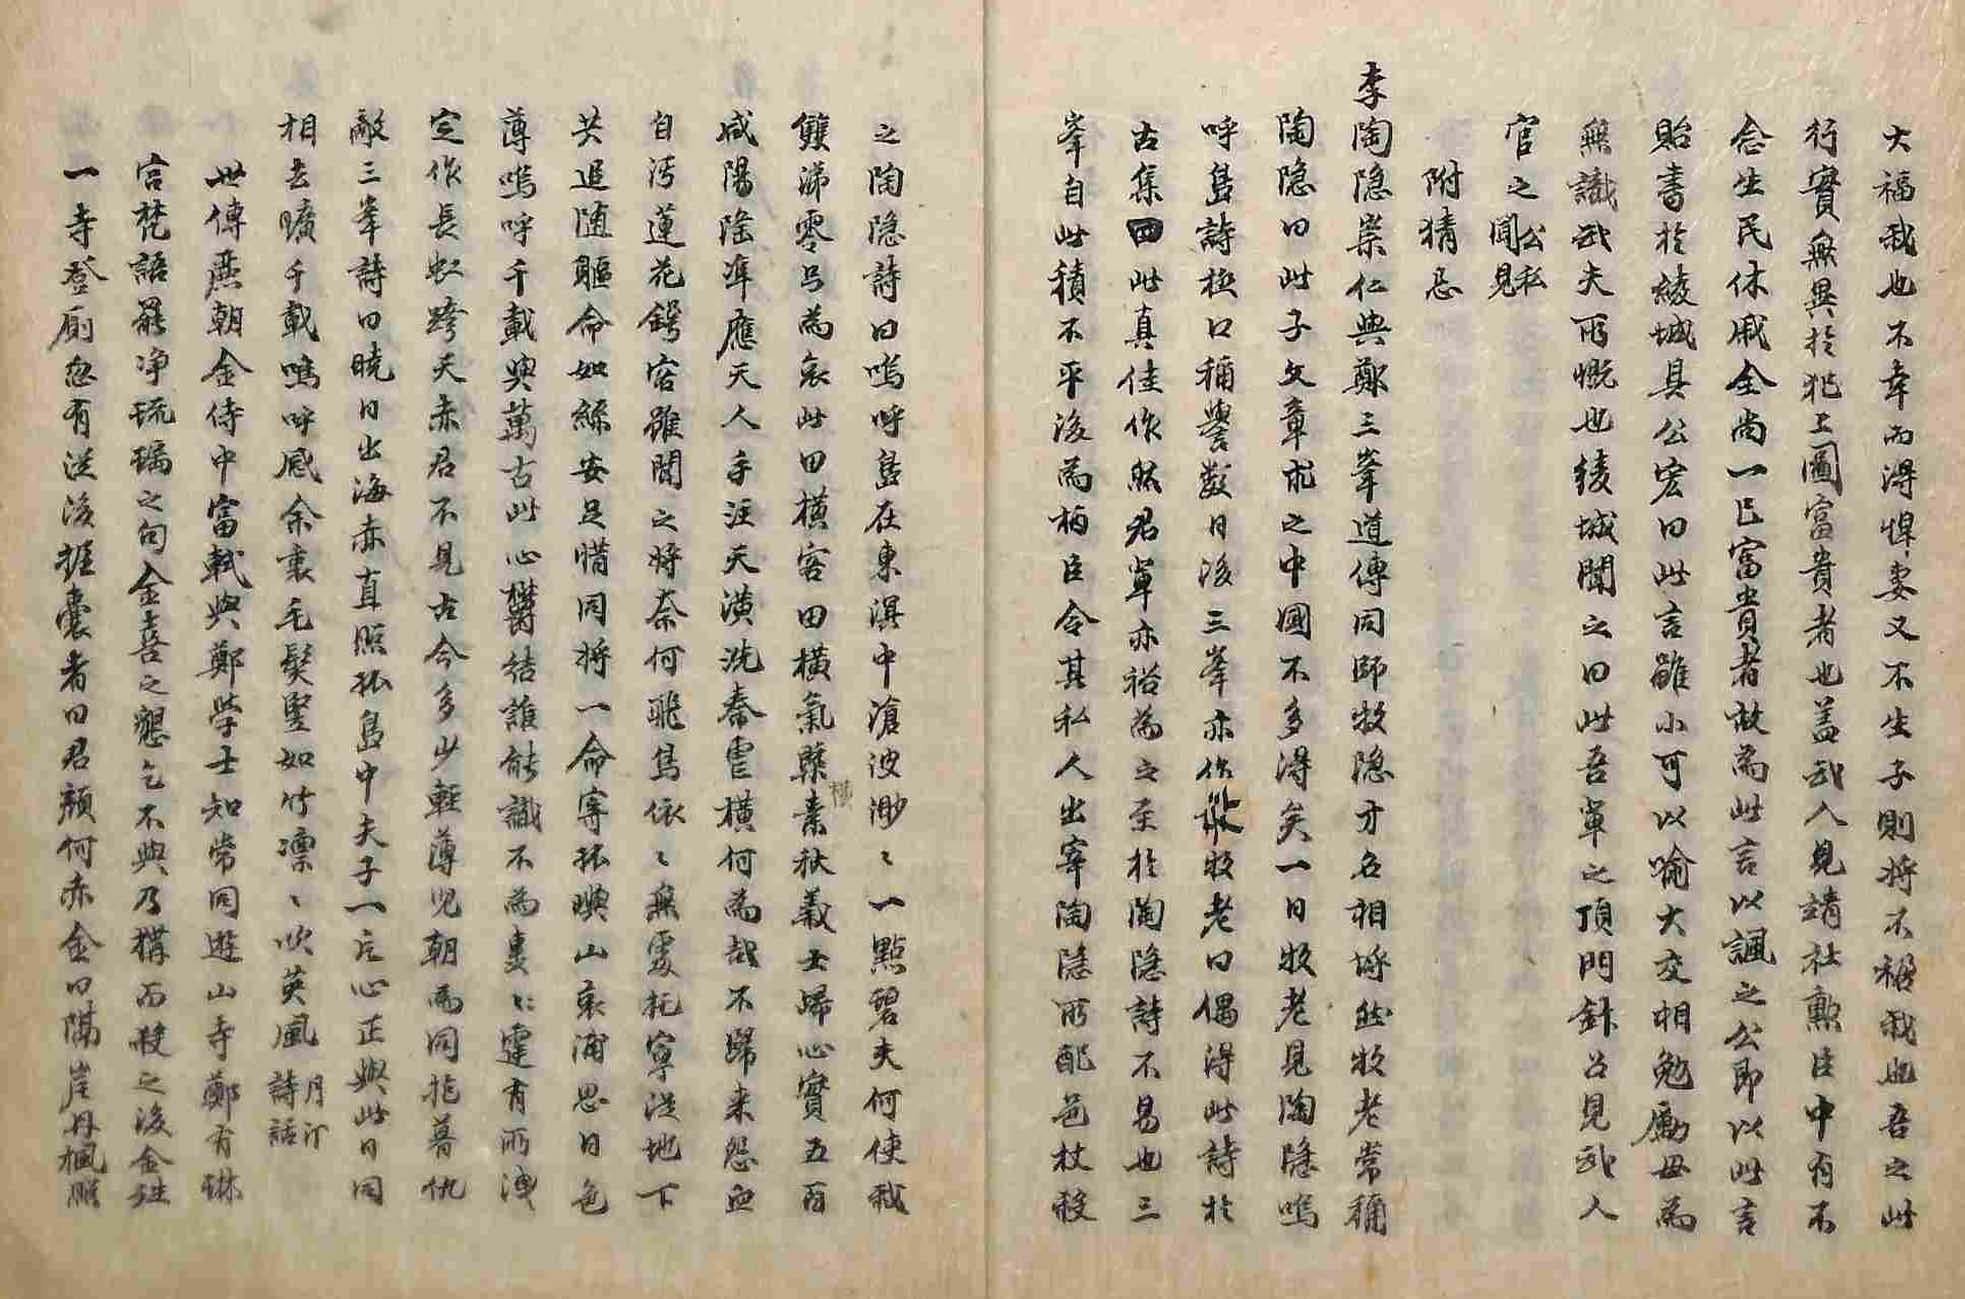 大福我也不幸而得悍妻又不生子則將不福我也吾之此
行實無異於犯上圖富貴者也盖武人見靖社勲臣中有不
念生民休戚全尚一己富貴者故為此言以諷之公即以此言
貽書於綾城具公宏曰此言雖小可以喻大交相勉勵毋為
無識武夫所慨也綾城聞之曰此吾軍之頂門針召見武人
官之 公私聞見
附猜忌
李陶隐崇仁與鄭三峯道傳同師牧隐才名相埒然牧老常稱
陶隐曰此子文章求之中國不多得矣一日牧老見陶隐嗚
呼島詩極口稱譽數日後三峯亦作 牧老曰偶得此詩於
古集 此真佳作然君軍亦裕為之至於陶隐詩不易也三
峯自此積不平後為柄臣令其私人出宰陶隐所配邑杖殺
之陶隐詩曰嗚呼島在東溟中滄波渺〻一點碧夫何使我
雙涕零只為哀此田橫客田橫氣槩橫素秋義士歸心實五百
咸陽隆準應天人手注天潢洗秦虐橫何為哉不歸来怨血
自汚蓮花鍔客雖聞之將奈何飛鳥依〻無處托寧從地下
共追随軀命如絲安足惜同將一命寄孤嶼山哀浦思日色
薄嗚呼千載與萬古此心欝結誰能識不為轟〻霆有所洩
定作長虹跨天赤君不見古今多少輕薄兒朝為同袍暮仇
敵三峯詩曰曉日出海赤直照孤島中夫子一片心正與此日同
相去曠千載嗚呼感余衷毛髮竪如竹凛〻吹英風 月汀詩話
世傳麗朝金侍中富軾與鄭學士知常同遊山寺鄭有琳
宫梵語罷净琉璃之句金喜之懇乞不與乃搆而殺之後金
一寺登厠忽有從後握囊者曰君顔何赤金曰隔岸丹楓照